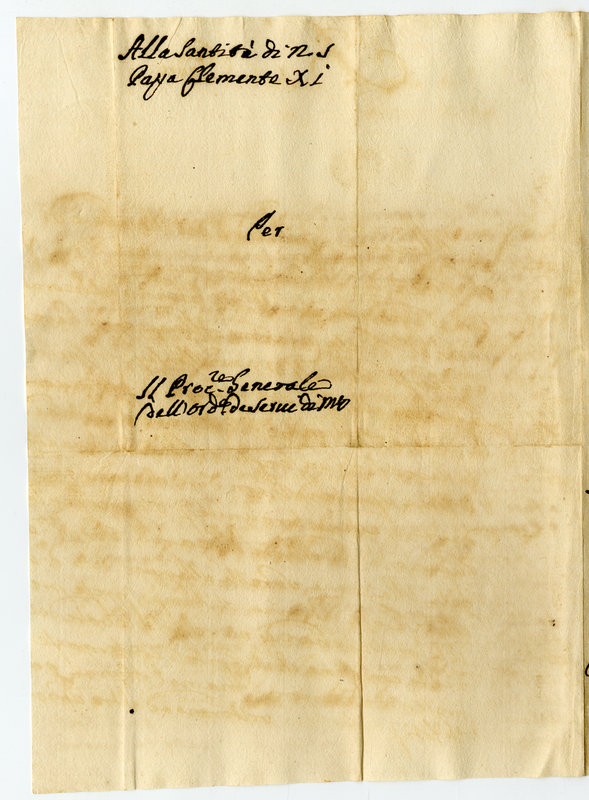 Alla Santità di N. S
Papa Clemente XI
Per
Il Proc.re Generale
dell'Ord.e de Servi di MV